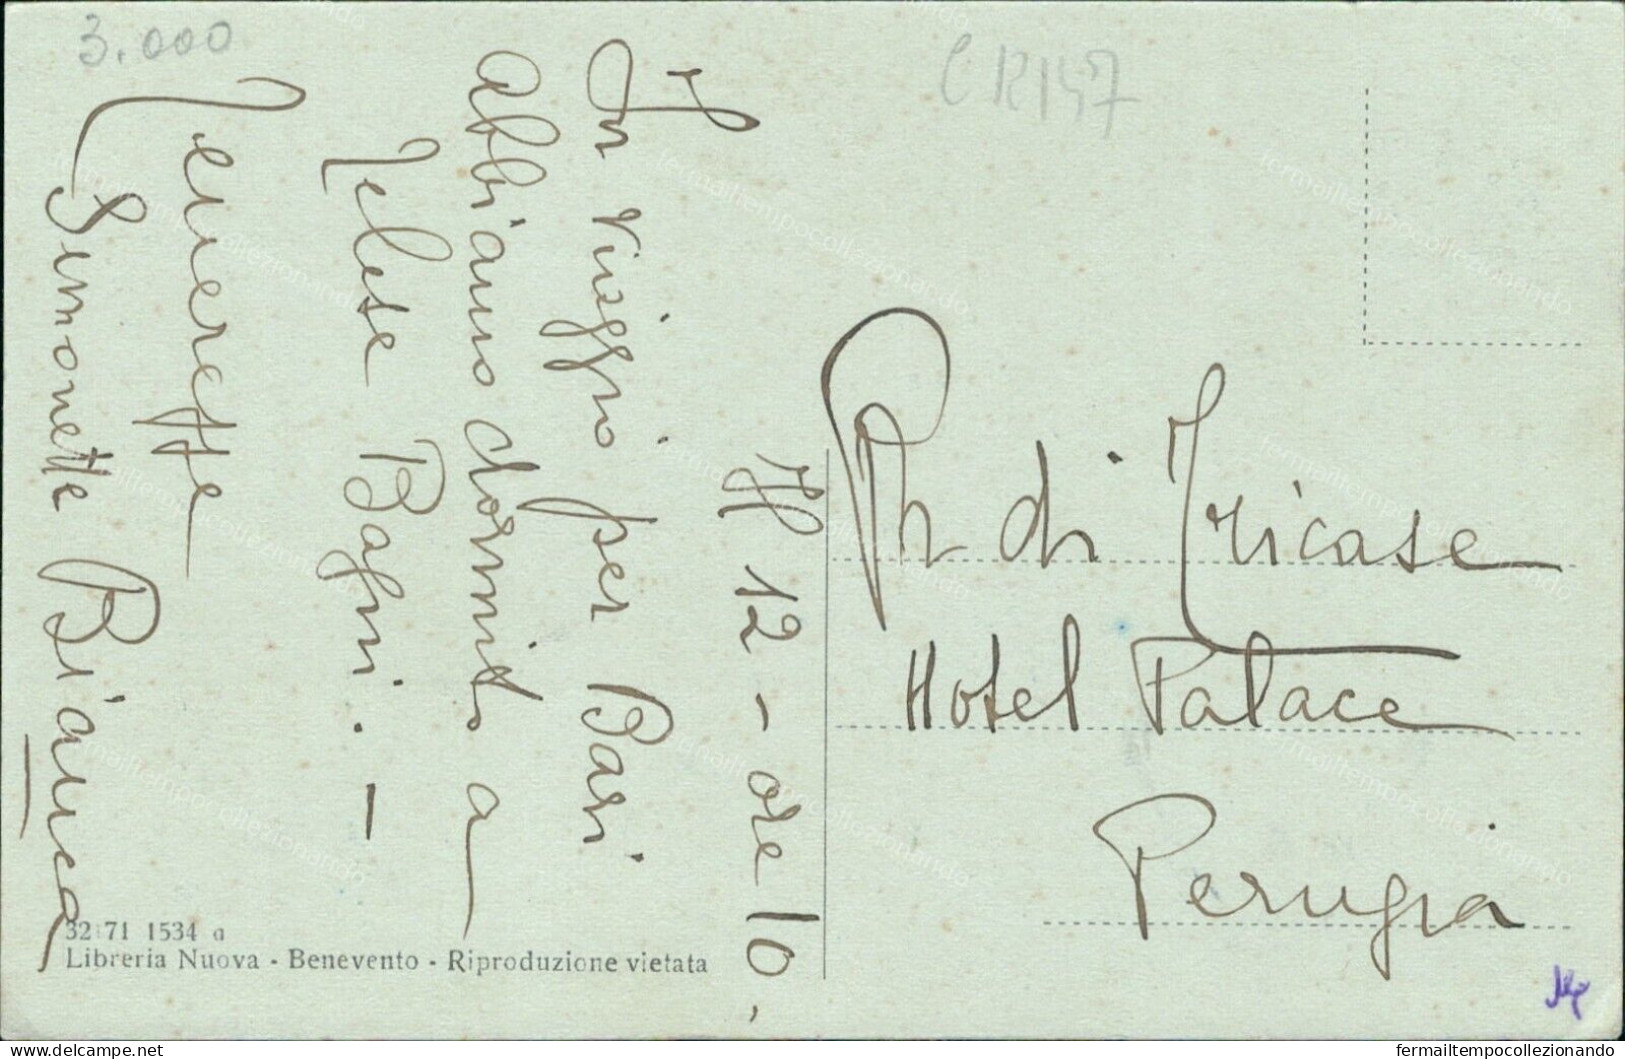 3.000
Il 12 - ore 10.
In viaggio per Bari
abbiamo dormito a
Telese Bagni. -
Simonetta Bianca
32:71 1534 a
Libreria Nuova - Benevento - Riproduzione vietata
di Tricase
Hotel Palace
Perugia
delcampe.net
fermailtempocollezionando